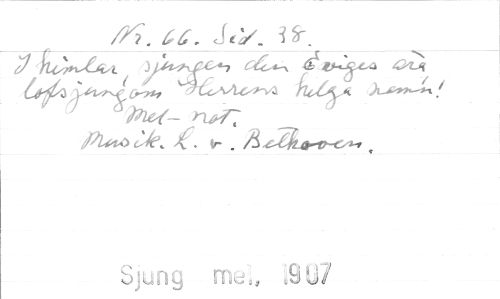 Nr. 66. Sid. 38.
I himlar, sjungen den Eviges ära
lofsjungom Herrens helga namn!
Mel-not.
Musik. L. v. Bethoven.
Sjung mel, 1907